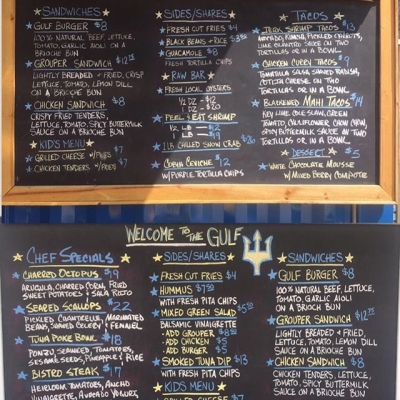 SANDWICHES
GULF BURGER $8
100% NATURAL BEEF, LETTUCE,
TOMATO, GARLIC AIOLI ON A
BRIOCHE BUN
GROUPER SANDWICH
LIGHTLY BREADED + FRIED, CRISP
LETTUCE, TOMATO, LEMON DILL
ON A BRIOCHE BUN
CHICKEN SANDWICH $8
CRISPY FRIED TENDERS,
LETTUCE, TOMATO, SPICY BUTTERMILK
SAUCE ON A BRIOCHE BUN
KID'S MENU
GRILLED CHEESE W/FRIES $7
CHICKEN TENDERS W/FRIES $7
SIDES/SHARES
FRESH CUT FRIES $4
BLACK BEANS + RICE
GUACAMOLE $8
FRESH TORTILLA CHIPS
RAW BAR
FRESH LOCAL OYSTERS
1/2 DZ
DZ
PEEL & EAT SHRIMP
1/2 LB
LB
1 LB CHILLED SNOW CRAB
COBIA CEVICHE $12
W/PURPLE TORTILLA CHIPS
TACOS
JERK SHRIMP TACOS $13
LIME CILANTRO SAUCE ON TWO
TORTILLAS OR IN A BOWL
CHICKEN CURRY TACOS $9
TORTILLAS OR IN A BOWL
BLACKENED MAHI TACOS $14
KEY LIME COLE SLAW, GREEN
TOMATO, CAULIFLOWER CHOW CHOW,
SPICY BUTTERMILK SAUCE ON TWO
TORTILLAS OR IN A BOWL
DESSERT $5
WHITE CHOCOLATE MOUSSE
W/ MIXED BERRY COMPOTE
WELCOME TO THE GULF
CHEF SPECIALS
CHARRED OCTOPUS $19
ARUGULA, CHARRED CORN, FRIED
SWEET POTATOES + SALSA ROJO
SEARED SCALLOPS $22
PICKLED CHANTERELLE, MARINATED
BEANS, SHAVED CELERY & FENNEL
TUNA POKE BOWL $18
PONZU, SEAWEED, TOMATOES,
SESAME SEEDS, PINEAPPLE & RICE
BISTRO STEAK $17
HEIRLOOM TOMATOES, ANCHO
VINAIGRETTE, AVOCADO
SIDES/SHARES
FRESH CUT FRIES $4
HUMMUS
WITH FRESH PITA CHIPS
MIXED GREEN SALAD $5
BALSAMIC VINAIGRETTE
+ ADD GROUPER
+ ADD CHICKEN $5
+ ADD BURGER $5
SMOKED TUNA DIP $13
WITH FRESH PITA CHIPS
KIDS MENU
GRILLED CHEESE $7
SANDWICHES
GULF BURGER $8
100% NATURAL BEEF, LETTUCE,
TOMATO, GARLIC AIOLI
ON A BRIOCHE BUN
GROUPER SANDWICH $12
LIGHTLY BREADED + FRIED,
LETTUCE, TOMATO, LEMON DILL
SAUCE ON A BRIOCHE BUN
CHICKEN SANDWICH $8
CHICKEN TENDERS, LETTUCE,
TOMATO, SPICY BUTTERMILK
SAUCE ON A BRIOCHE BUN